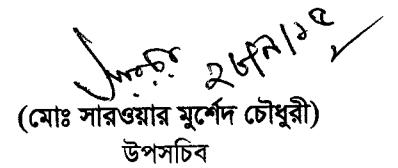 (মোঃ সারওয়ার মুর্শেদ চৌধুরী)
উপসচিব